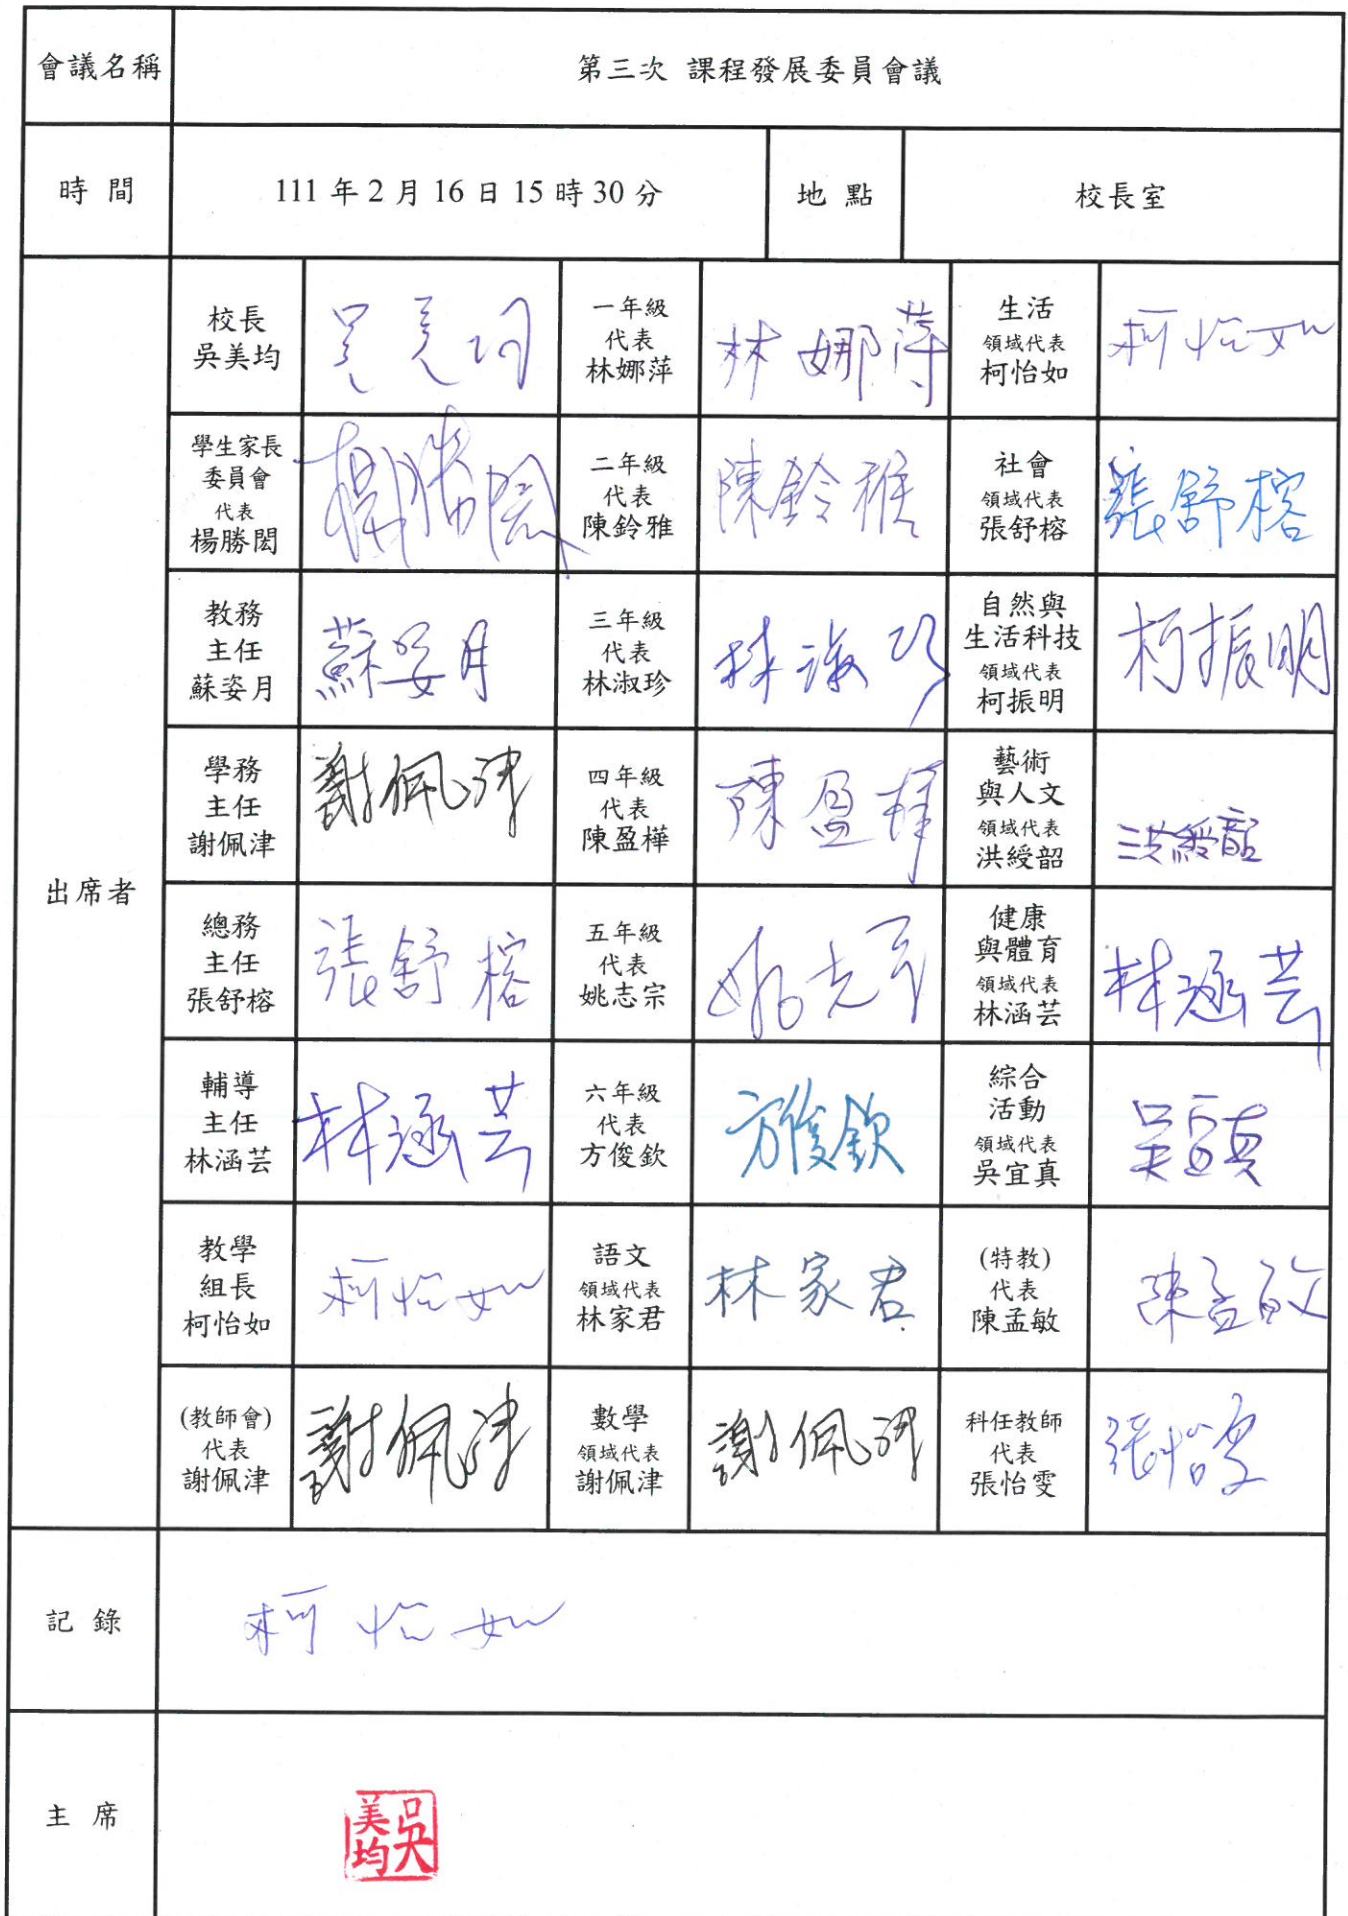 會議名稱
第三次 課程發展委員會議
時 間
111 年 2 月 16 日 15 時 30 分
地 點
校長室
出席者
校長
吳美均
吳美均
一年級
代表
林娜萍
林娜萍
生活
領域代表
柯怡如
柯怡如
學生家長
委員會
代表
楊勝閎
楊勝閎
二年級
代表
陳鈴雅
陳鈴雅
社會
領域代表
張舒榕
張舒榕
教務
主任
蘇姿月
蘇姿月
三年級
代表
林淑珍
林淑珍
自然與
生活科技
領域代表
柯振明
柯振明
學務
主任
謝佩津
謝佩津
四年級
代表
陳盈樺
陳盈樺
藝術
與人文
領域代表
洪綬韶
洪綬韶
總務
主任
張舒榕
張舒榕
五年級
代表
姚志宗
姚志宗
健康
與體育
領域代表
林涵芸
林涵芸
輔導
主任
林涵芸
林涵芸
六年級
代表
方俊欽
方俊欽
綜合
活動
領域代表
吳宜真
吳宜真
教學
組長
柯怡如
柯怡如
語文
領域代表
林家君
林家君
(特教)
代表
陳孟敏
陳孟敏
(教師會)
代表
謝佩津
謝佩津
數學
領域代表
謝佩津
謝佩津
科任教師
代表
張怡雯
張怡雯
記 錄
柯怡如
主 席
吳美均